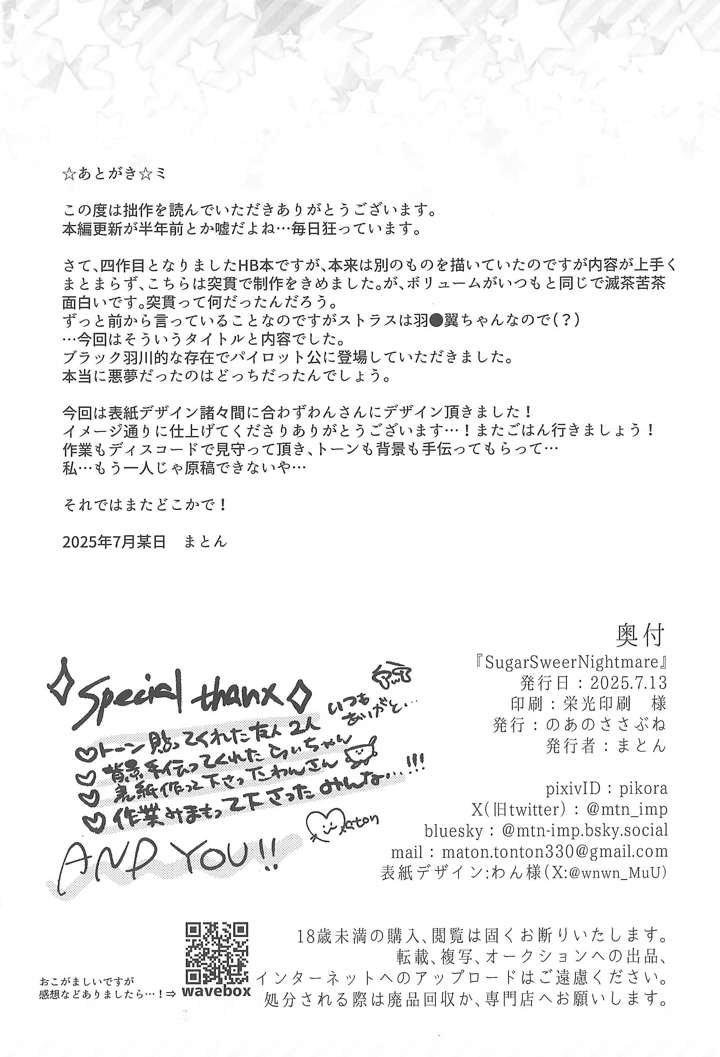 ☆あとがき☆ミ
この度は拙作を読んでいただきありがとうございます。
本編更新が半年前とか嘘だよね…毎日狂っています。
さて、四作目となりましたHB本ですが、本来は別のものを描いていたのですが内容が上手く
まとまらず、こちらは突貫で制作をきめました。が、ボリュームがいつもと同じで滅茶苦茶
面白いです。突貫って何だったんだろう。
ずっと前から言っていることなのですがストラスは羽●翼ちゃんなので(？)
…今回はそういうタイトルと内容でした。
ブラック羽川的な存在でパイロット公に登場していただきました。
本当に悪夢だったのはどっちだったんでしょう。
今回は表紙デザイン諸々間に合わずわんさんにデザイン頂きました！
イメージ通りに仕上げてくださりありがとうございます…！またごはん行きましょう！
作業もディスコードで見守って頂き、トーンも背景も手伝ってもらって…
私…もう一人じゃ原稿できないや…
それではまたどこかで！
2025年7月某日　まとん
Special thanx
いつも
ありがと…
♡トーン貼ってくれた友人2人
♡背景手伝ってくれたらいちゃん
♡表紙作って下さったわんさん
♡作業みまもって下さったみんな…!!!
maton
AND YOU!!
奥付
『SugarSweerNightmare』
発行日：2025.7.13
印刷：栄光印刷　様
発行：のあのささぶね
発行者：まとん
pixivID：pikora
X(旧twitter)：@mtn_imp
bluesky：@mtn-imp.bsky.social
mail：maton.tonton330@gmail.com
表紙デザイン:わん様(X:@wnwn_MuU)
18歳未満の購入、閲覧は固くお断りいたします。
転載、複写、オークションへの出品、
インターネットへのアップロードはご遠慮ください。
処分される際は廃品回収か、専門店へお願いします。
おこがましいですが
感想などありましたら…！⇒
wavebox